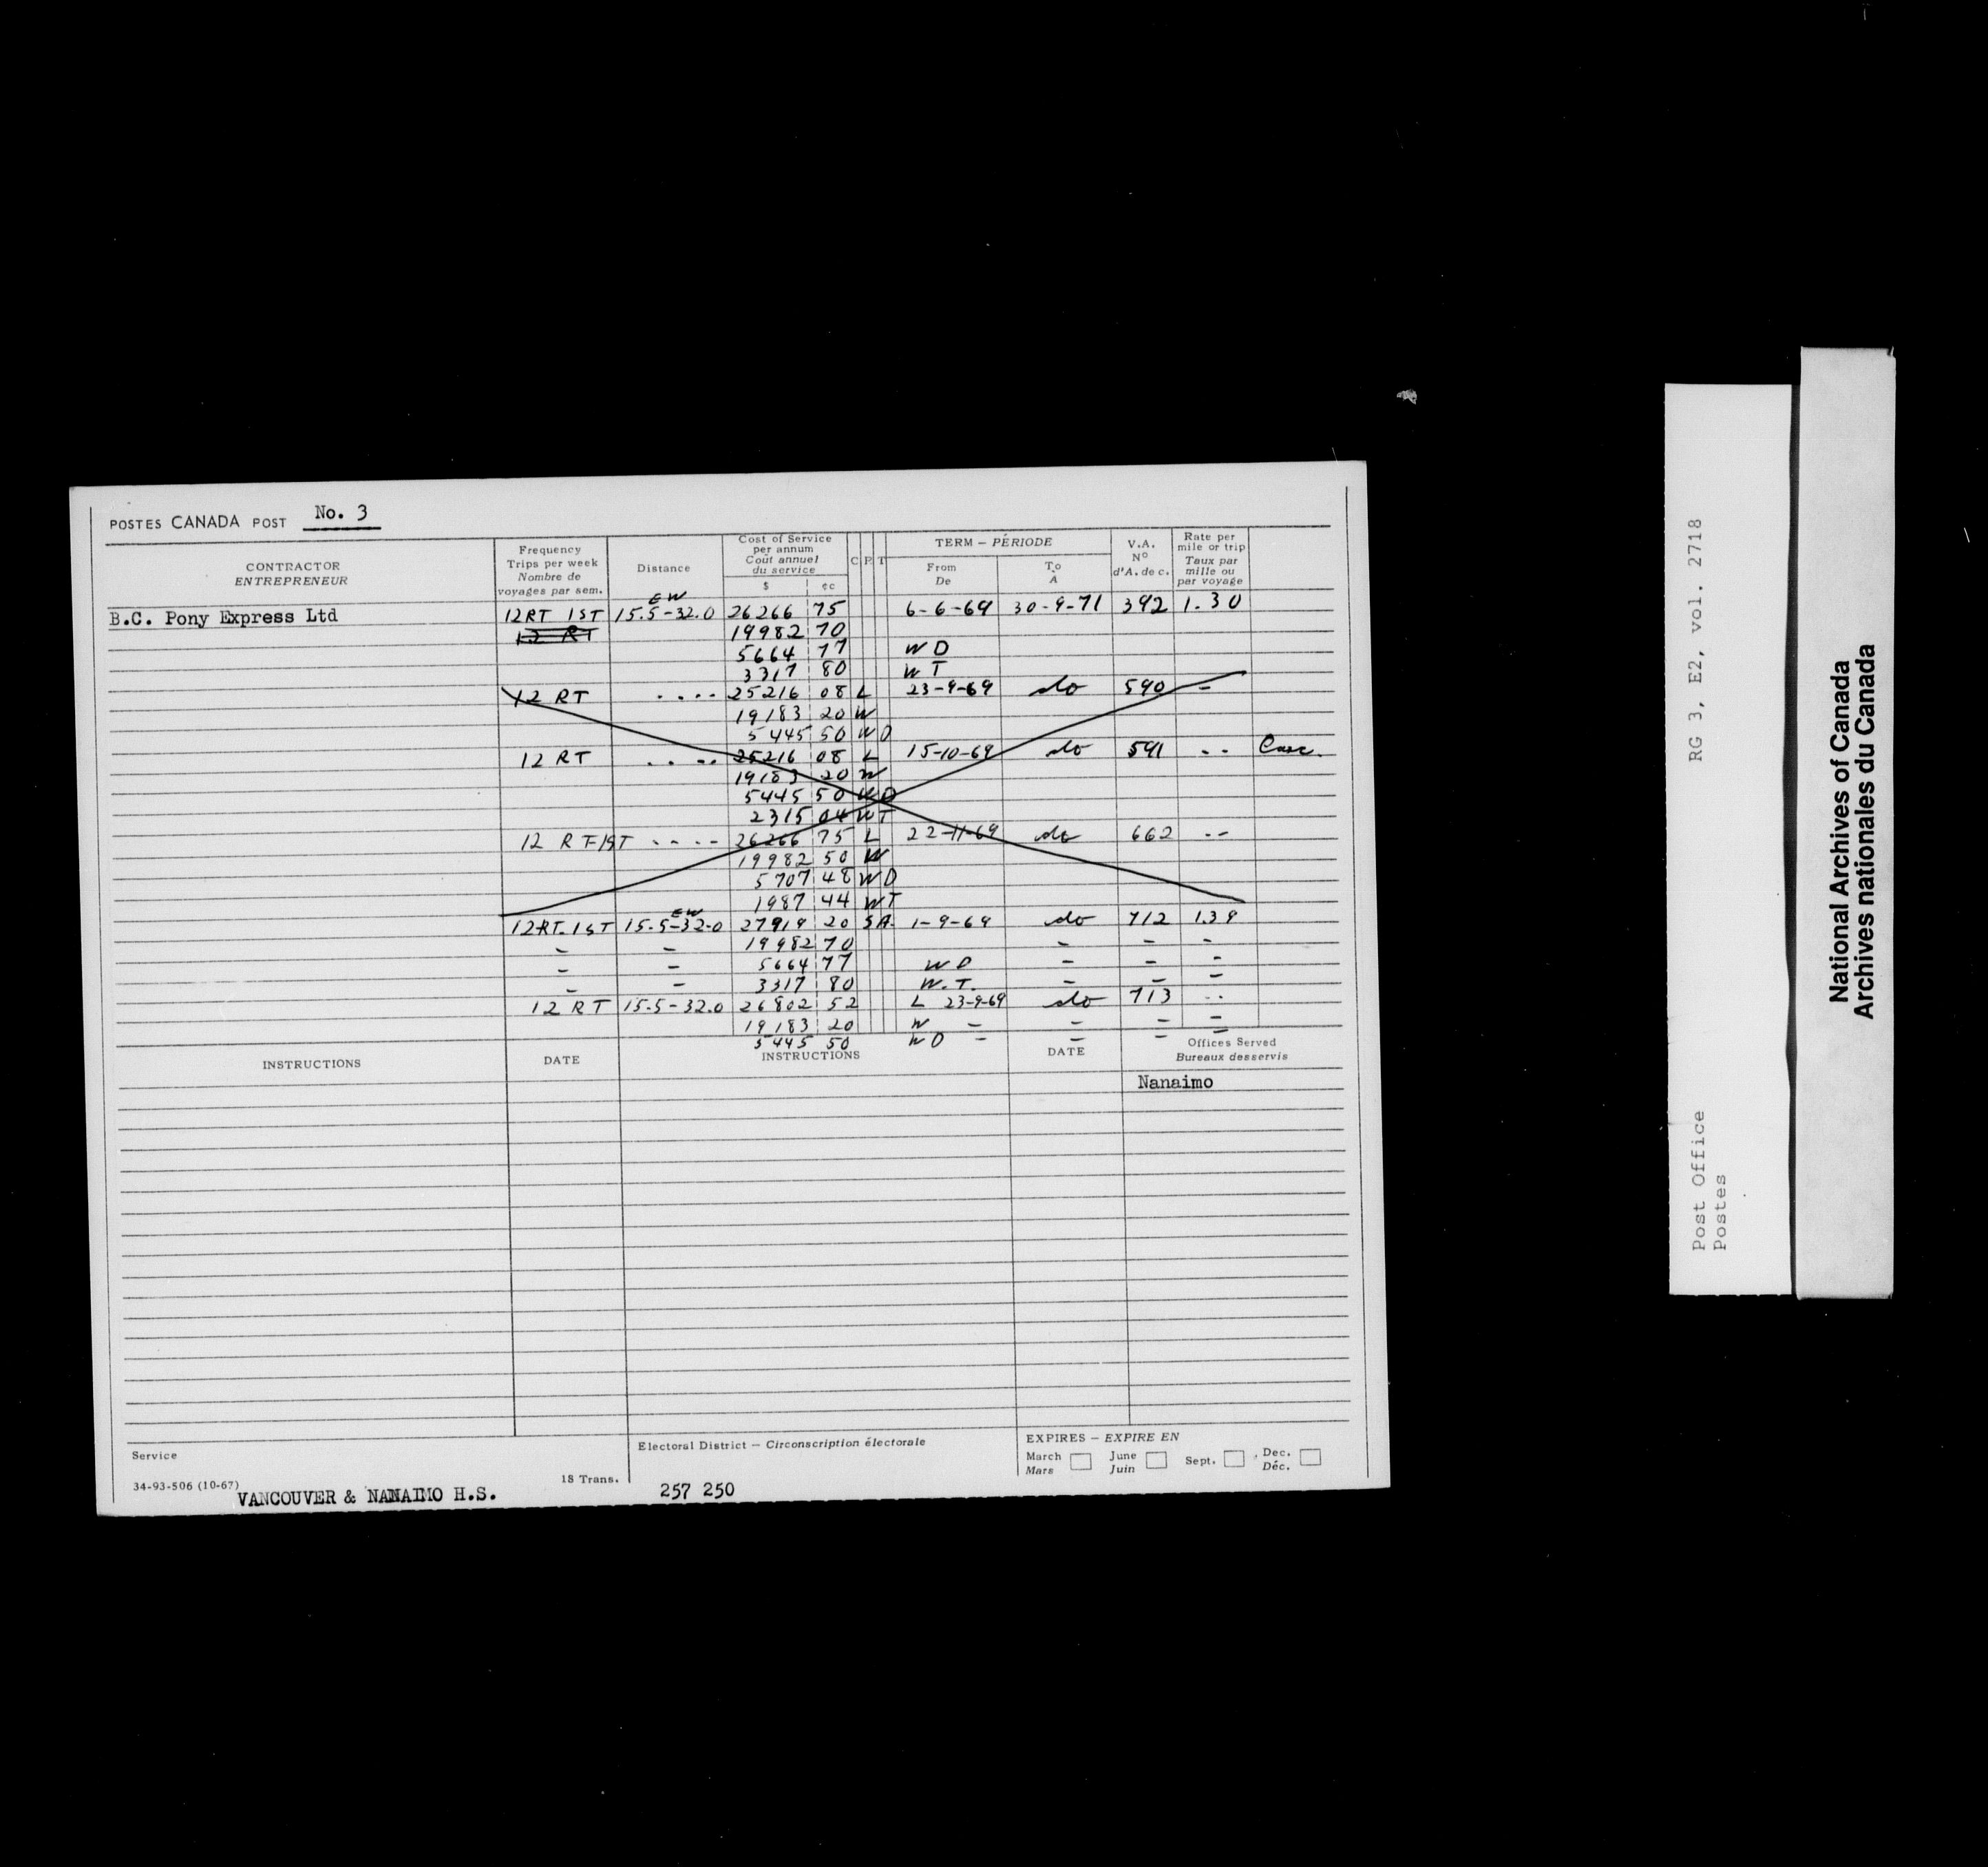 POSTES CANADA POST No. 3
CONTRACTOR
ENTREPRENEUR
Frequency
Trips per week
Nombre de
voyages par sem.
Distance
Cost of Service
per annum
Coût annuel
du service
$ ¢c
C P. T
TERM – PÉRIODE
From
De
To
A
V.A.
N°
d'A. de c.
Rate per
mile or trip
Taux par
mille ou
par voyage
EW
B.C. Pony Express Ltd 12RT 1ST 15.5-32.0 26266 75 6-6-69 30-9-71 392 1.30
12 RT 19982 70
5664 77 W D
3317 80 W T
12 RT .... 25216 08 L 23-9-69 do 590 -
19183 20 W
5445 50 W D
12 RT .... 25216 08 L 15-10-69 do 591 -- Canc.
19183 20 W
5445 50 W D
2315 04 W T
12 RT-1ST .... 26266 75 L 22-11-69 do 662 --
19982 50 W
5707 48 W D
1987 44 W T
EW
12RT-1ST 15.5-32.0 27919 20 S A. 1-9-69 do 712 1.39
- - 19982 70 - - -
- - 5664 77 W D - - -
- - 3317 80 W.T. - - -
12 RT 15.5-32.0 26802 52 L 23-9-69 do 713 ..
19183 20 W - - - -
5445 50 W D - - - -
INSTRUCTIONS DATE INSTRUCTIONS DATE Offices Served
Bureaux desservis
Nanaimo
Service
34-93-506 (10-67) 18 Trans.
VANCOUVER & NANAIMO H.S.
Electoral District – Circonscription électorale
257 250
EXPIRES – EXPIRE EN
March June Sept. Dec.
Mars Juin Déc.
RG 3, E2, vol. 2718
Post Office
Postes
National Archives of Canada
Archives nationales du Canada